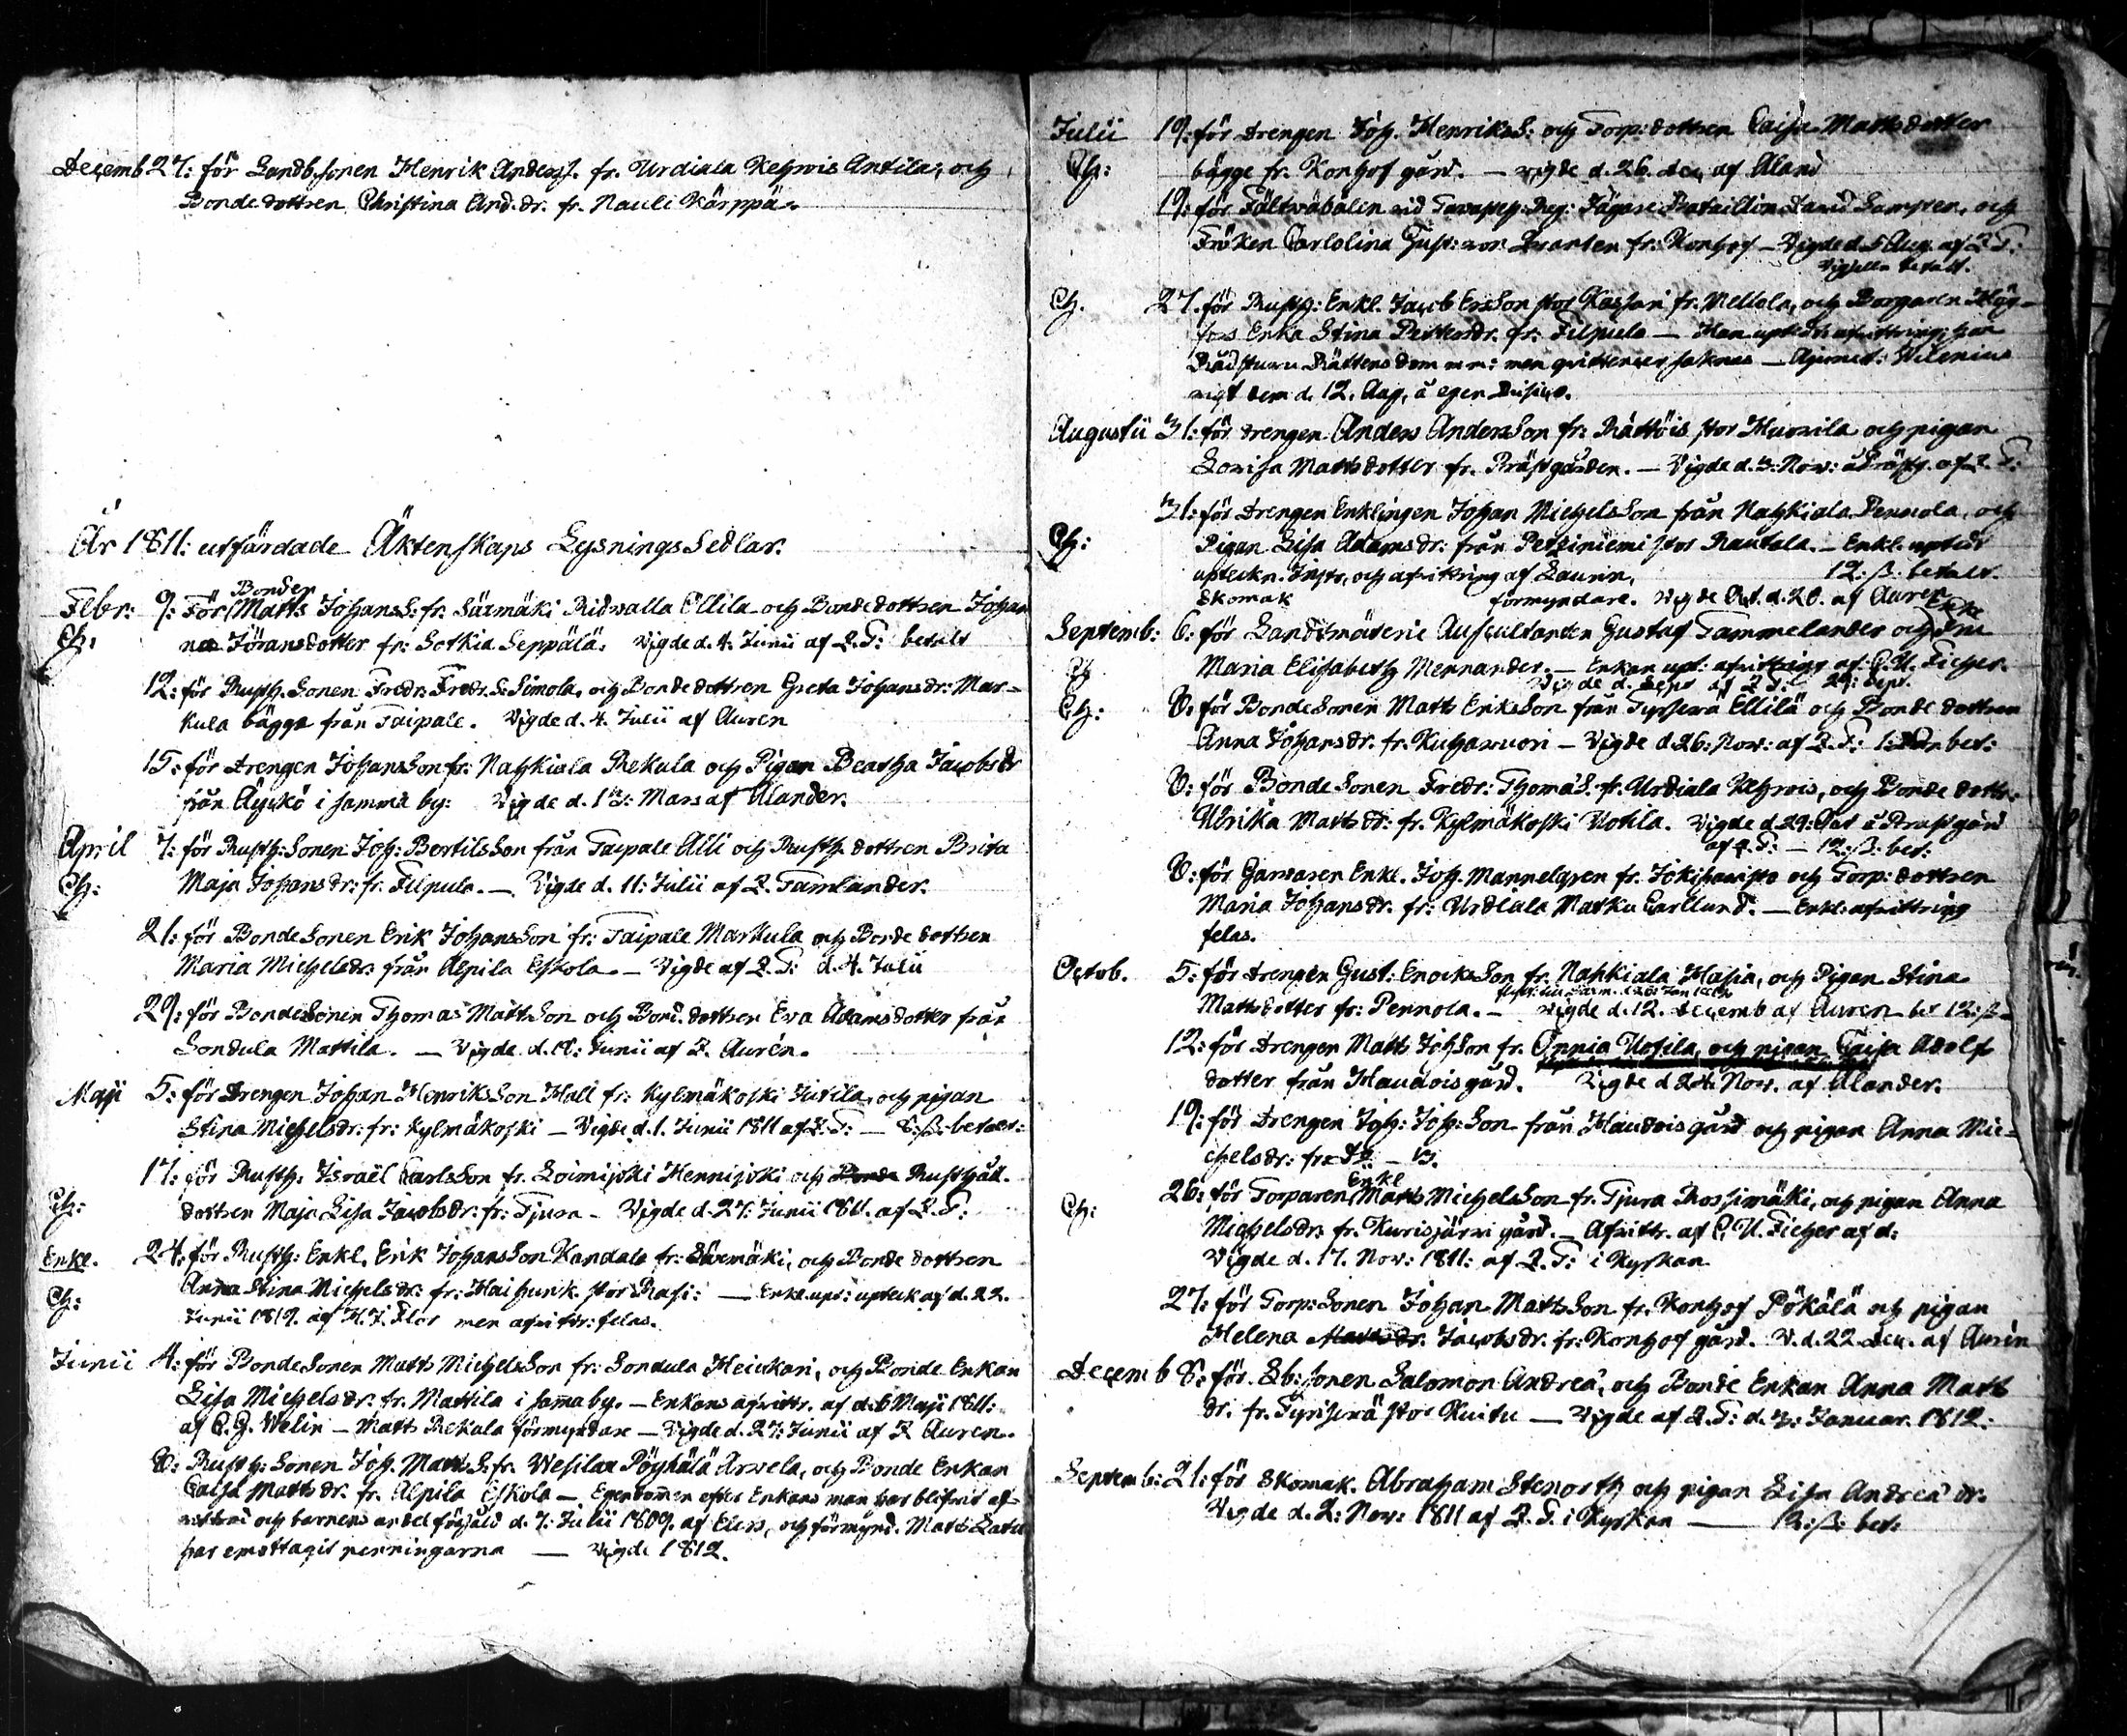 Decemb 27: för Landb. sonen Henrik Anders S. fr. Urdiala Kehrois Antila, och
Bonde dottren Christina And. dr. fr. Nauli Kärppä.
År 1811: utfärdade Äktenskaps Lysnings Sedlar.
Bonden
Febr: 9: För Matts Johans S: fr. Särmäki Ridvalla Ollila och Bonde dottren Johan
Ch: na Jöransdotter fr: Sotkia Seppälä. Vigde d. 4. Junii af L. T: betalt
12: för Rusth. Sonen Fredr. Fredr. S. Simola, och Bonde dottren Greta Johans dr: Mar-
kula bägge från Taipale. Vigde d. 4. Julii af Auren
15: för Drengen Johansson fr: Nahkiala Rekula och Pigan Beatha Jacobs dr
från Äyskö i samma by: Vigde d. 13: Mars af Alander.
April 7: för Rusth: Sonen Joh: Bertils Son från Taipale Alli och Rusth. dottren Brita
Ch: Maja Johans dr: fr. Filpula. — Vigde d. 11: Julii af L. Tamlander.
21: för Bonde Sonen Erik Johans Son fr: Taipale Markula och Bonde dottren
Maria Michels dr: från Alpila Eskola — Vigde af L. T: d. 4. Julii
29: för Bonde Sonen Thomas Matts Son och Bond. dottren Eva Adams dotter från
Sondula Mattila. — Vigde d. 18: Junii af L. Aurén.
Maji 5: för Drengen Johan Henriks Son Hall fr: Kylmäkoski Jutila, och pigan
Stina Michels dr: fr: Kylmäkoski — Vigde d. 1. Junii 1811 af L. T: — 8. ß. betalt:
17: för Rusth: Israël Carls Son fr. Loimijoki Hennijoki och Bonde Rusthåll.
Ch: dottren Maja Lisa Jacobs dr: fr: Tjura — Vigde d. 27: Junii 1811. af L. T:
Enkl. 24: för Rusth: Enkl. Erik Johans Son Kandala fr: Särmäki, och Bonde dottren
Ch: Anna Stina Michels dr: fr: Haihunk. stor Rasi: — Enkl. upt: upteck af d. 22.
Junii 1819. af H. J. Flor men afvittr: felas.
Junii 4: för Bonde Sonen Matts Michels Son fr: Sondula Heickari, och Bonde Enkan
Lisa Michels dr. fr. Mattila i samma by. — Enkans afvittr. af d. 6 Maji 1811:
af C. G. Welin — Matts Rekola förmyndare — Vigde d. 27: Junii af L. Auren.
8: Rusth: Sonen Joh. Matts S: fr. Wesilax Pöyhälä Arvela, och Bonde Enkan
Caisa Matts dr. fr. Alpila Eskola — Egendomen efter Enkans man har blifvit af-
vittrad och barnens andel försåld d. 7: Julii 1809. af Elers, och förmynd. Matts
har emottagit penningarna — Vigde 1812.
Julii 19: för Drengen Joh. Henriks S: och Torp: dottren Caisa Matts dotter
Ch: bägge fr. Konhof gård. — Vigde d. 26. Dec. af Aland
19: för Fältväbälen vid Tavasteh: Reg: Jägare Bataillon David Lampren, och
Fröken Carlolina Gust: von Qvanten fr: Konhof — Vigde d. 5 Aug. af L T:
Vigsell. betalt.
Ch. 27. för Rusth: Enkl. Jacob Ers Son stor Kassari fr. Mellola, och Borgaren Hög-
fors Enka Stina Petters dr. fr. Filpula — Han upt
Rådstuvu Rättens dom m m: men qvittencer saknas — Wilenius
vigt dem d. 12. Aug. å egen
Augusti 31: för drengen Anders Anders Son fr: Rättöis stor Huovila och pigan
Lovisa Matts dotter fr. Prästgården. — Vigde d. 3: Nov: å Prästg. af L. T:
31: för Drengen Enklingen Johan Michels Son från Nahkiala Pennola, och
Ch: Pigan Lisa Adams dr: från Peltiniemi stor Rautola. — Enkl. upt
upteckn. Instr. och afvittring af Laurin, 12: ß: betalt.
Skomak förmyndare. Vigde Oct. d. 20. af Auren
Enke
Septemb: 6: för Landtmäterie Auscultanten Gustaf Tammelander och Fru
Ch Maria Elisabeth Mennander. — Enkan upt: afvittring af C. U. Ficher.
Vigde d. Sept af L T: 29: Sept.
Ch: 8: för Bonde Sonen Matts Eriks Son från Tyrisevä Ellilä och Bonde dottren
Anna Johans dr. fr. Kuhavuori — Vigde d. 26: Nov: af L. T: bet:
8: för Bonde Sonen Fredr: Thomæ S. fr. Urdiala Kehrois, och Bonde dottr:
Ulrika Matts dr: fr. Kylmäkoski Uotila. Vigde d. 29: Oct å Prästgård
af L. T: — 12: ß: bet:
8: för Garvaren Enkl. Joh. Mannelqren fr. Jokihavisto och Torp: dottren
Maria Johans dr. fr: Urdiala Matku Carllund. — Enkl: afvittring
felas.
Octob. 5: för Drengen Gust: Enocks Son fr. Nahkiala Hasia, och Pigan Stina
Matts dotter fr: Pennola. — Vigde d. 12. Decemb af Auren bet 12: ß.
12: för Drengen Matts Joh Son fr. Annia Uotila, och pigan Caisa Adolfs
dotter från Haudois gård. Vigde d. 24. Nov. af Alander.
19: för Drengen Joh: Joh: Son från Haudois gård och pigan Anna Mic-
chels dr: fr. D:o — V.
Enkl
Ch: 26: för Torparen Matts Michels Son fr. Tjura Rossimäki, och pigan Anna
Michels dr: fr. Kurisjärvi gård. — Afvittr. af C. U. Ficher af d:
Vigde d. 17. Nov: 1811: af L. T: i Kyrkan
27: för Torp: Sonen Johan Matts Son fr. Konhof Pökälä och pigan
Helena Matts dr. Jacobs dr. fr: Konhof gård. V. d. 22 Dec. af Aurén
Decemb 8: för Lb: Sonen Salomon Andreæ, och Bonde Enkan Anna Matts
dr. fr. Tyrisevä stor Kuitu — Vigde af L. T: d. 3: Januar. 1812:
Septemb: 21: för Skomak. Abraham Stenorth och pigan Lisa Andreæ dr.
Vigde d. 2: Nov: 1811 af L. T. i Kyrkan — 12: ß: bet: